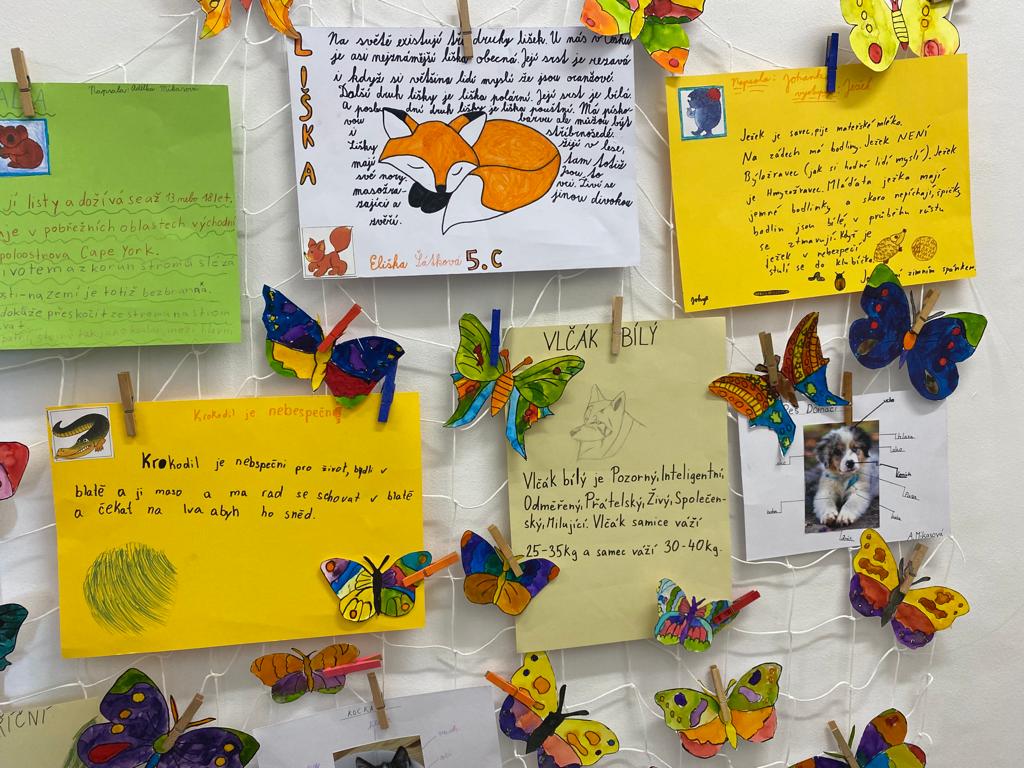 Napsala: Adélka Mikasová
jí listy a dožívá se až 13 nebo 18 let.
je v pobřežních oblastech východní
poloostrova Cape York.
životem a z korun stromů slézá
osti-na zemi je totiž bezbranná.
dokáže přeskočit ze stromu na strom
LIŠKA
Na světě existují tři druhy lišek. U nás v Česku
je asi nejznámější liška obecná. Její srst je rezavá
i když si většina lidí myslí že jsou oranžové.
Další druh lišky je liška polární. Její srst je bílá.
a poslední druh lišky je liška pouštní. Má písko-
vou barvu ale můžou být
i stříbrnošedé.
Lišky žijí v lese,
mají tam totiž
své nory. Jsou to
masožra- vci. Živí se
zající a jinou divokou
zvěří.
Eliška Látková 5.C
Napsala: Johanka
Ježek
Ježek je savec, pije mateřské mléko.
Na zádech má bodliny. Ježek NENÍ
Býložravec (jak si hodně lidí myslí). Ježek
je Hmyzožravec. Mláďata ježka mají
jemné bodlinky a skoro nepíchají, špičky
bodlin jsou bílé, v průběhu růstu
se ztmavují. Když je
ježek v nebezpečí
stulí se do klubíčka.
zimním spánkem.
Krokodil je nebespečný
Krokodil je nebspečni pro život, bydli v
blatě a ji maso a ma rad se schovat v blatě
a čekat na lva abyh ho sněd.
VLČÁK BÍLÝ
Vlčák bílý je Pozorný, Inteligentní,
Odměřený, Přátelský, Živý, Společen-
ský, Milující. Vlčák samice váží
25-35kg a samec váží 30-40kg.
Pes Domácí
ucho
A. Mikasová
ŘÍČNÍ
KOČKA